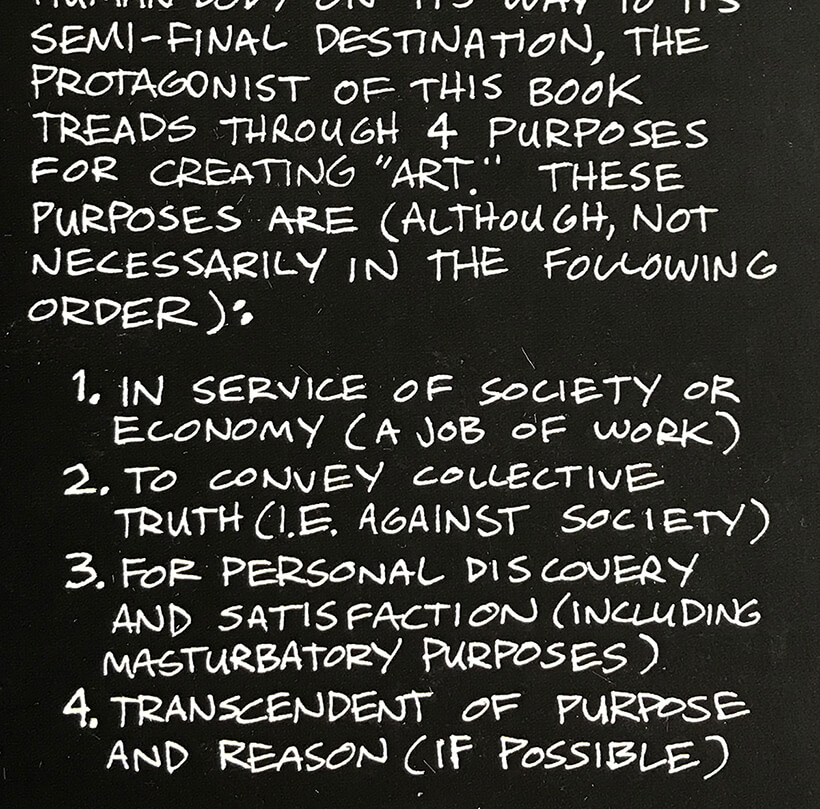 HUMAN BODY ON ITS WAY TO ITS
SEMI-FINAL DESTINATION, THE
PROTAGONIST OF THIS BOOK
TREADS THROUGH 4 PURPOSES
FOR CREATING "ART." THESE
PURPOSES ARE (ALTHOUGH, NOT
NECESSARILY IN THE FOLLOWING
ORDER):
1. IN SERVICE OF SOCIETY OR
ECONOMY (A JOB OF WORK)
2. TO CONVEY COLLECTIVE
TRUTH (I.E. AGAINST SOCIETY)
3. FOR PERSONAL DISCOVERY
AND SATISFACTION (INCLUDING
MASTURBATORY PURPOSES)
4. TRANSCENDENT OF PURPOSE
AND REASON (IF POSSIBLE)